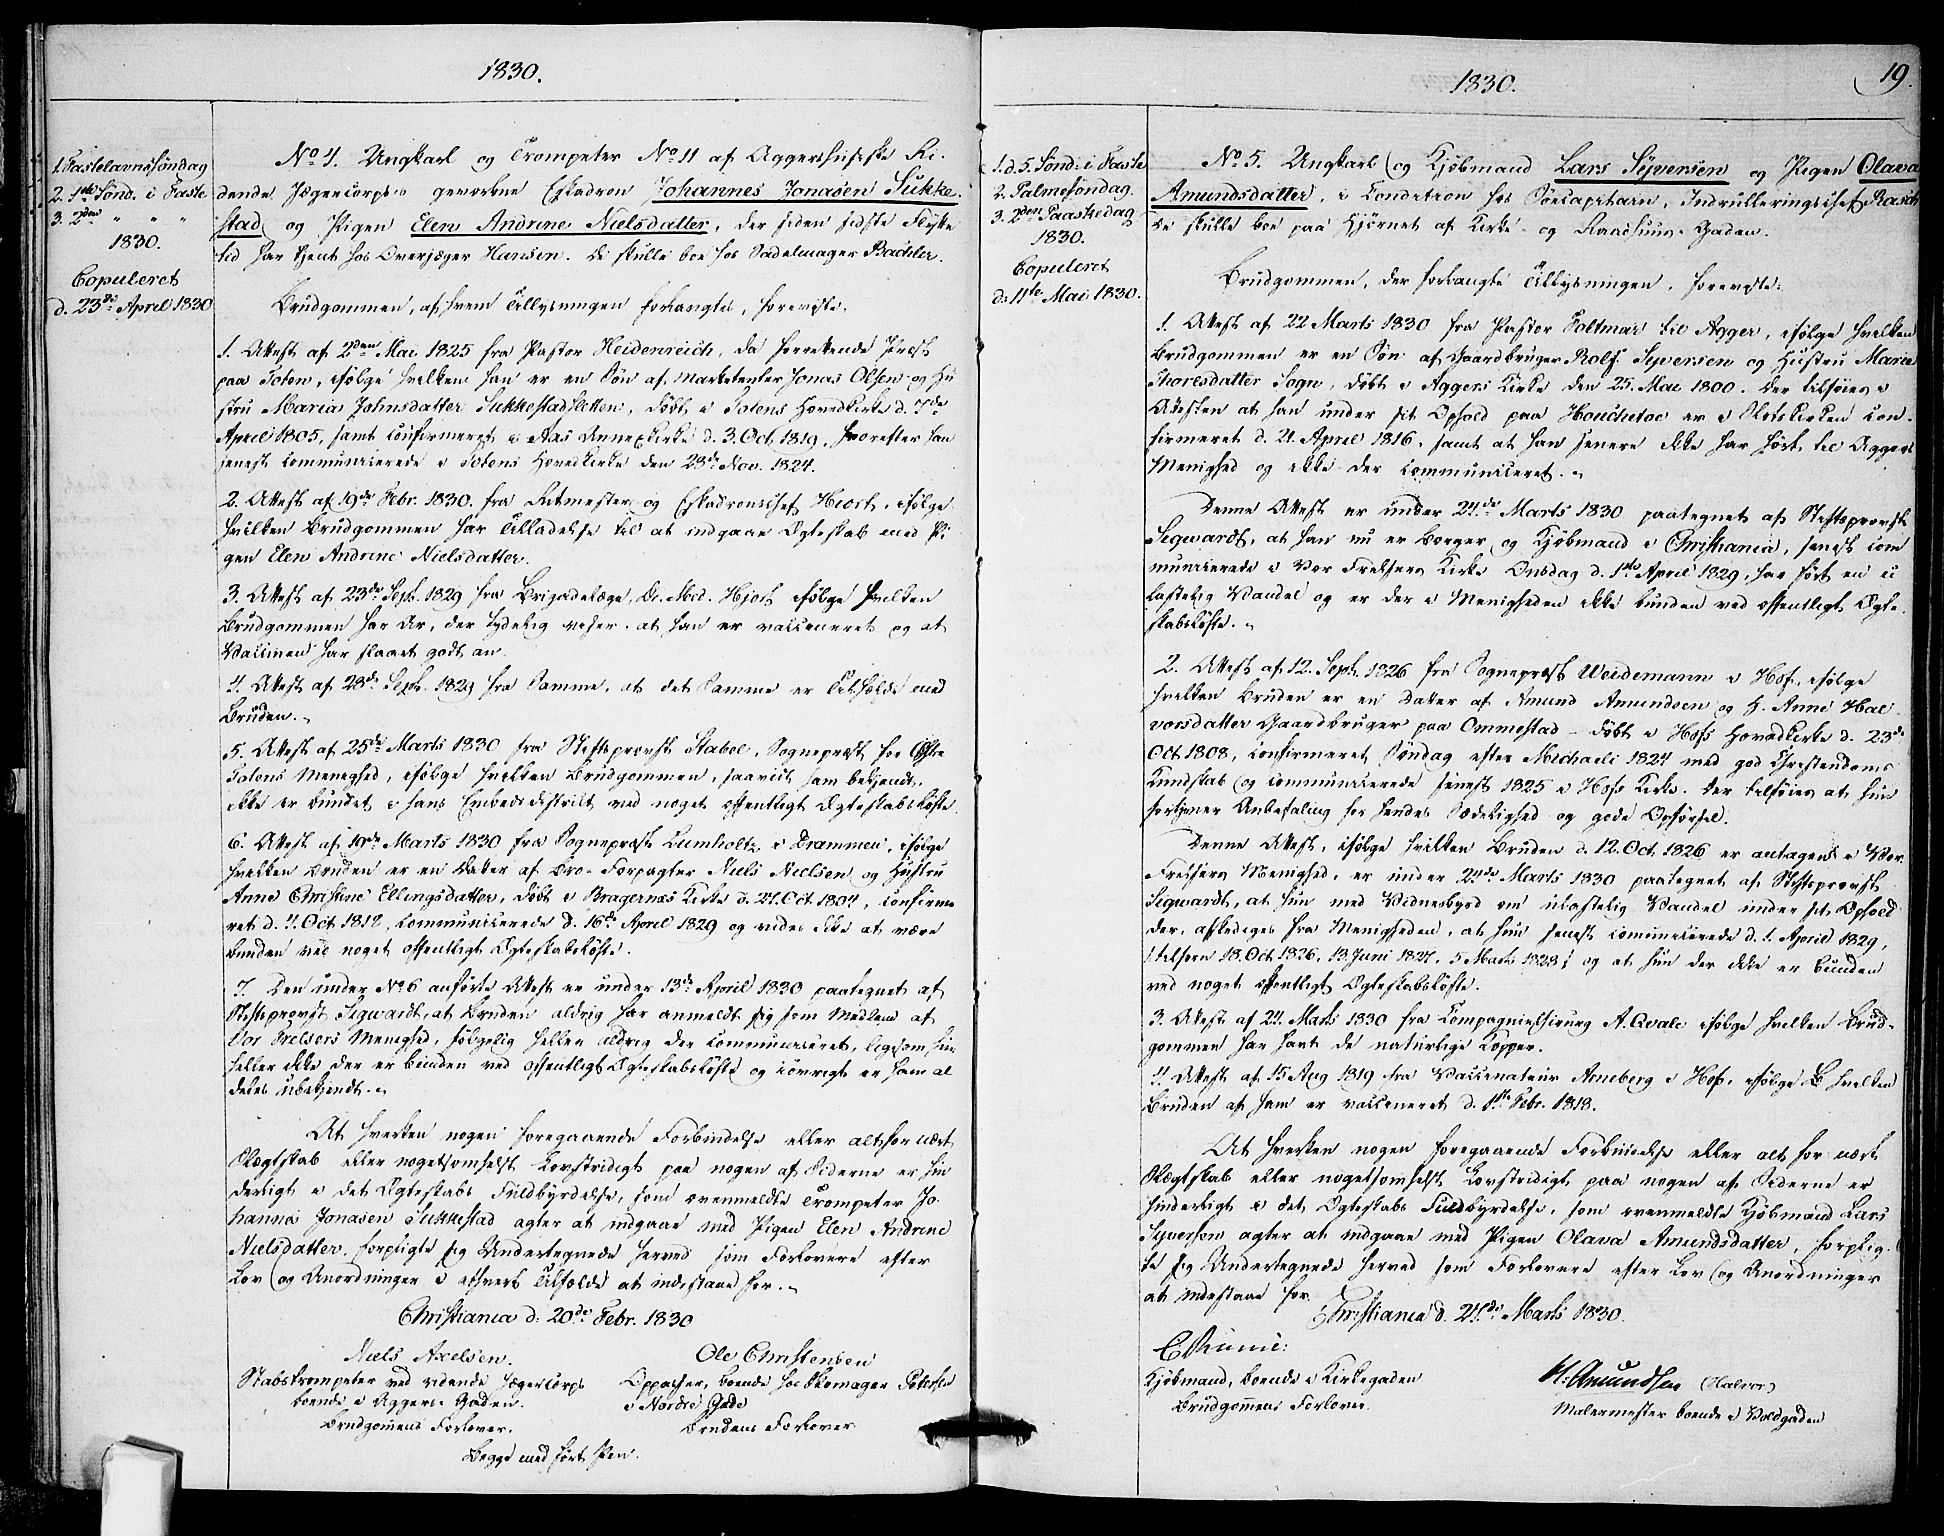 1830.
1. Fastelavnssøndag
2. 1ste Sønd. i Faste
3. 2den " " "
1830.
Copuleret
d. 23de April 1830
No 4. Ungkarl og Trompeter No 11 af Aggershusiske Ri-
dende Jægercorps's gevorbne Eskadron Johannes Jonasen Sukke-
stad og Pigen Elen Andrine Nielsdatter, der siden sidste Flytte-
tid har tjent hos Overjæger Hansen. De skulle boe hos Sadelmager Bachler.
Brudgommen, af hvem Tillysningen forlangtes, foreviste:
1. Attest af 2den Mai 1825 fra Pastor Heidenreich, da forrettende Præst
paa Toten, ifølge hvilken han er en Søn af Marketenter Jonas Olsen og Hu-
stru Maria Johnsdatter Sukkestadsletten, døbt i Totens Hovedkirke d. 7de
April 1805, samt confirmeret i Aas Annexkirke d. 3. Oct. 1819, hvorefter han
senest communicerede i Totens Hovedkirke den 28de Nov. 1824.
2. Attest af 19de Febr. 1830. fra Ritmester og Eskadronschef Hjort, ifølge
hvilken Brudgommen har Tilladelse til at indgaae Ægteskab med Pi-
gen Elen Andrine Nielsdatter.
3. Attest af 23de Sept. 1829 fra Brigadelæge, Dr. Med. Hjort ifølge hvilken
Brudgommen har Ar, der tydelig viser, at han er vaccineret og at
Vaccinen har slaaet godt an.
4. Attest af 28de Sept. 1829 fra Samme, at det Samme er Tilfældet med
Bruden.
5. Attest af 25de Marts 1830 fra Stiftsprovst Stabel, Sognepræst for Østre
Totens Menighed, ifølge hvilken Brudgommen, saavidt ham bekjendt,
ikke er bundet i hans Embedsdistrikt ved noget offentligt Ægteskabsløfte.
6. Attest af 19de Marts 1830 fra Sognepræst Lumholtz i Drammen, ifølge
hvilken Bruden er en Datter af Bro-Forpagter Niels Nielsen og Hustru
Anne Christine Ellingsdatter, døbt i Bragernæs Kirke d. 21. Oct 1804, confirme-
ret d. 4. Oct 1818, communicerede d. 16de April 1829 og vides ikke at være
bunden ved noget offentligt Ægteskabsløfte.
7. Den under No 6 anførte Attest er under 13de April 1830 paategnet af
Stiftsprovst Sigwardt, at Bruden aldrig har anmeldt sig som Medlem af
Vor Frelsers Menighed, følgelig heller aldrig der communiceret, ligesom hun
heller ikke der er bunden ved offentligt Ægteskabsløfte og iøvrigt er ham al-
deles ubekjendt.
At hverken nogen foregaaende Forbindelse eller altfor nært
Slægtskab eller nogetsomhelst Lovstridigt paa nogen af Siderne er hin-
derligt i det Ægteskabs Fuldbyrdelse, som ovenmeldte Trompeter Jo-
hannes Jonasen Sukkestad agter at indgaae med Pigen Elen Andrine
Nielsdatter, forpligte sig Undertegnede herved som Forlovere efter
Lov og Anordninger i ethvert Tilfælde at indestaae for.
Christiania d: 20de Febr. 1830
Niels Axelsen.
Stabstrompeter ved ridende Jægercorps
boende i Aggers-Gaden.
Brudgommens Forlover.
Ole Christensen
Oppasser, boende hos Skomager Petersen
i Nordre Gade
Brudens Forlover
Begge med ført Pen.
1830.
19.
1. d. 5. Sønd. i Faste
2. Palmesøndag.
3. 2den Paaskedag
1830.
Copuleret
d. 11te Mai 1830.
No 5. Ungkarl og Kjøbmand Lars Syversen og Pigen Olava
Amundsdatter, i Condition hos Søecapitain, Indrulleringschef Rasch
De skulle boe paa Hjørnet af Kirke- og Raadhuus-Gaden.
Brudgommen, der forlangte Tillysningen, foreviste:
1. Attest af 22 Marts 1830 fra Pastor Foltmar til Agger, ifølge hvilken
Brudgommen er en Søn af Gaardbruger Rolf Syversen og Hustru Marie
Thoresdatter Sogn, døbt i Aggers Kirke den 25. Mai 1800. Der tilføies i
Attesten at han under sit Ophold paa Hovedtoe er i Slotskirken con-
firmeret d. 21. April 1816, samt at han senere ikke har hørt til Aggers
Menighed og ikke der communiceret.
Denne Attest er under 24de Marts 1830 paategnet af Stiftsprovst
Sigwardt, at han nu er Borger og Kjøbmand i Christiania, senest com-
municerede i Vor Frelsers Kirke Onsdag d. 1ste April 1829, har ført en u-
lastelig Vandel og er der i Menigheden ikke bunden ved offentligt Ægte-
skabsløfte.
2. Attest af 12. Sept. 1826 fra Sognepræst Weidemann i Hof, ifølge
hvilken Bruden er en Datter af Amund Amundsen og H. Anne Hal-
vorsdatter Gaardbruger paa Ommestad - døbt i Hofs Hovedkirke d. 23de
Oct 1808, confirmeret Søndag efter Michaeli 1824 med god Christendoms
Kundskab og communicerede senest 1825 i Hofs Kirke. Der tilføies at hun
fortjener Anbefaling for hendes Sædelighed og gode Opførsel.
Denne Attest, ifølge hvilken Bruden d. 12. Oct. 1826 er antagen i Vor
Frelsers Menighed, er under 24de Marts 1830 paategnet af Stiftsprovst
Sigwardt, at hun med Vidnesbyrd om ulastelig Vandel under sit Ophold
der, afskediges fra Menigheden, at hun senest communicerede d. 1. April 1829,
(tilforn 18. Oct 1826, 13. Juni 1827, 5 Marts 1828) og at hun der ikke er bunden
ved noget offentligt Ægteskabsløfte.
3. Attest af 24. Marts 1830 fra Compagniechirurg A. Qvale ifølge hvilken Brud-
gommen har havt de naturlige Kopper.
4. Attest af 15 Aug 1819 fra Vaccinateur Arneberg i Hof, ifølge hvilken
Bruden af ham er vaccineret d. 1ste Febr. 1818.
At hverken nogen foregaaende Forbindelse eller alt for nært
Slægtskab eller nogetsomhelst Lovstridigt paa nogen af Siderne er
hinderligt i det Ægteskabs Fuldbyrdelse, som ovenmeldte Kjøbmand Lars
Syversen agter at indgaae med Pigen Olava Amundsdatter, forplig-
te sig Undertegnede herved som Forlovere efter Lov og Anordninger
at indestaae for
Christiania d. 24de Marts 1830.
Kjøbmand, boende i Kirkegaden
Brudgommens Forlover.
H. Amundsen (Halvor)
Malermester boende i Voldgaden